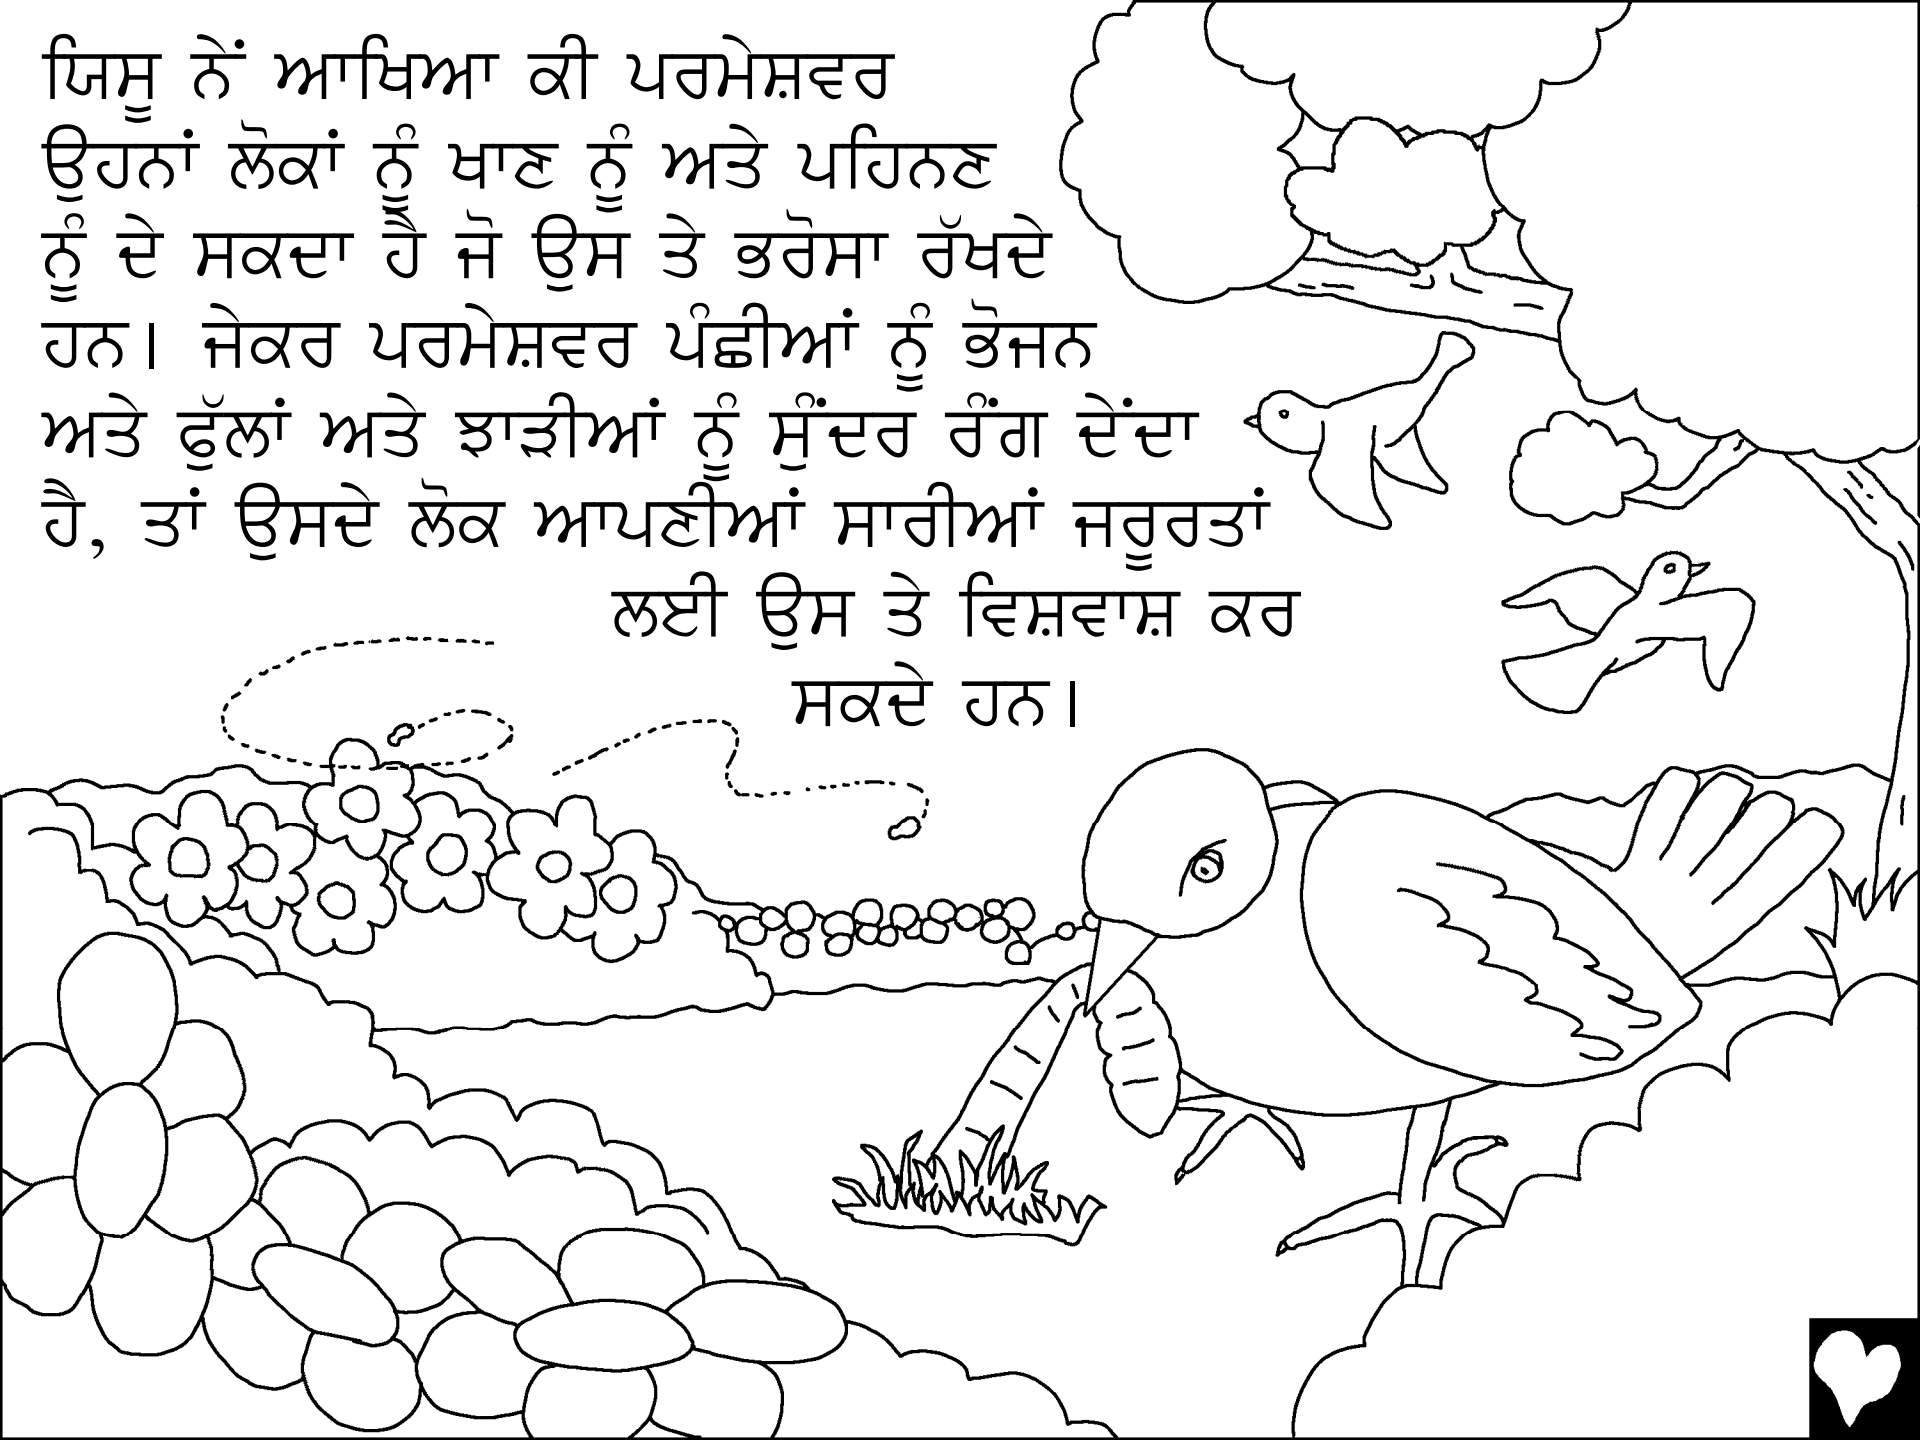 ਯਿਸੂ ਨੇਂ ਆਖਿਆ ਕੀ ਪਰਮੇਸ਼ਵਰ
ਉਹਨਾਂ ਲੋਕਾਂ ਨੂੰ ਖਾਣ ਨੂੰ ਅਤੇ ਪਹਿਨਣ
ਨੂੰ ਦੇ ਸਕਦਾ ਹੈ ਜੋ ਉਸ ਤੇ ਭਰੋਸਾ ਰੱਖਦੇ
ਹਨ। ਜੇਕਰ ਪਰਮੇਸ਼ਵਰ ਪੰਛੀਆਂ ਨੂੰ ਭੋਜਨ
ਅਤੇ ਫੁੱਲਾਂ ਅਤੇ ਝਾੜੀਆਂ ਨੂੰ ਸੁੰਦਰ ਰੰਗ ਦੇਂਦਾ
ਹੈ, ਤਾਂ ਉਸਦੇ ਲੋਕ ਆਪਣੀਆਂ ਸਾਰੀਆਂ ਜਰੂਰਤਾਂ
ਲਈ ਉਸ ਤੇ ਵਿਸ਼ਵਾਸ਼ ਕਰ
ਸਕਦੇ ਹਨ।